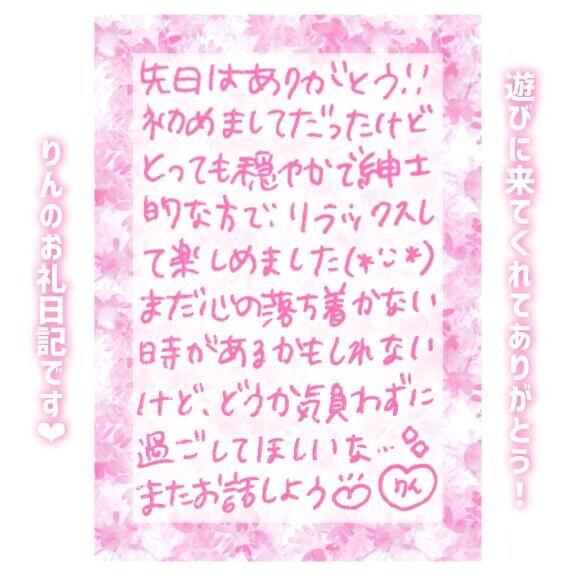 遊びに来てくれてありがとう!
先日はありがとう!!
初めましてだったけど
とっても穏やかで紳士
的な方で、リラックスし
て楽しめました(*ᵕ*)
まだ心の落ち着かない
時があるかもしれない
けど、どうか気負わずに
過ごしてほしいな…
またお話しよう
りん
りんのお礼日記です❤